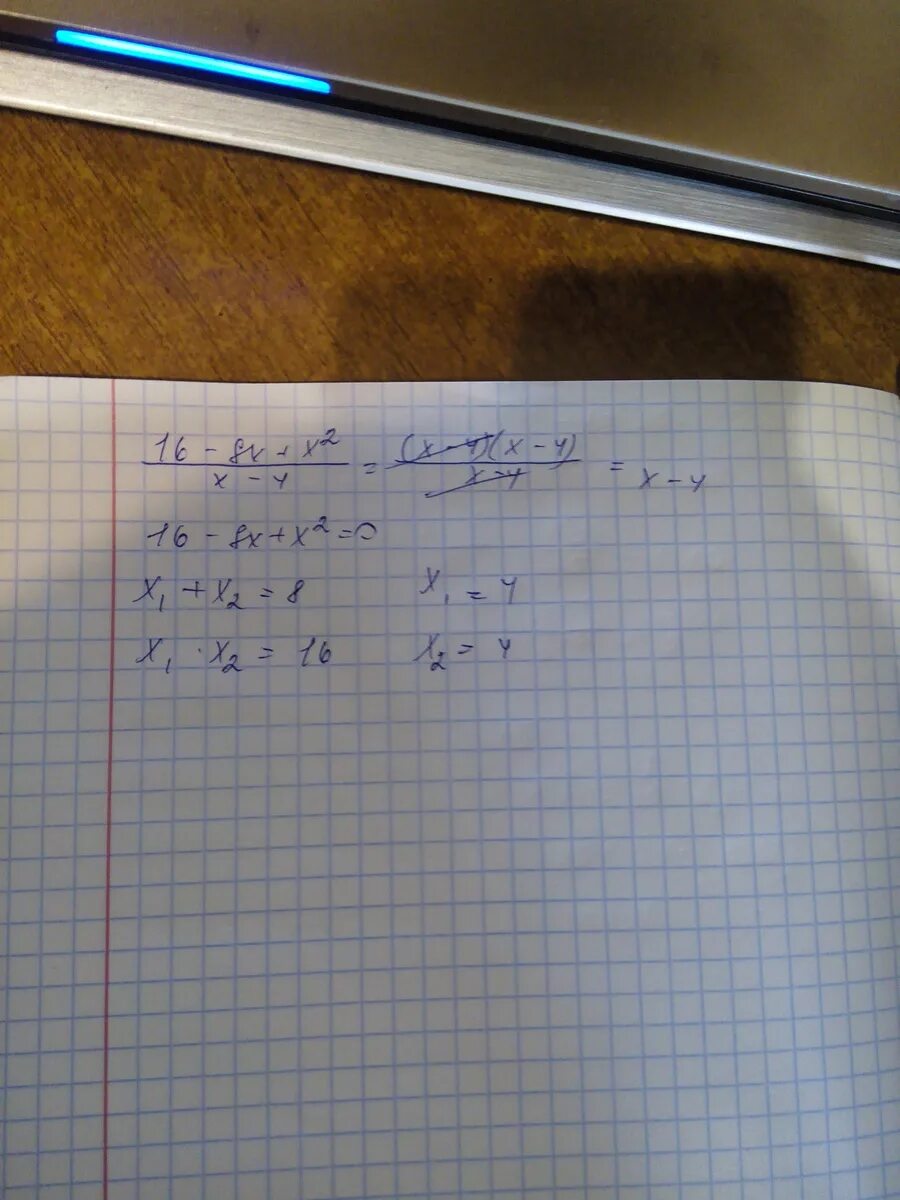 (16 - 8x + x²)/(x - 4) = ((x - 4)(x - 4))/(x - 4) = x - 4
16 - 8x + x² = 0
x₁ + x₂ = 8 x₁ = 4
x₁ · x₂ = 16 x₂ = 4